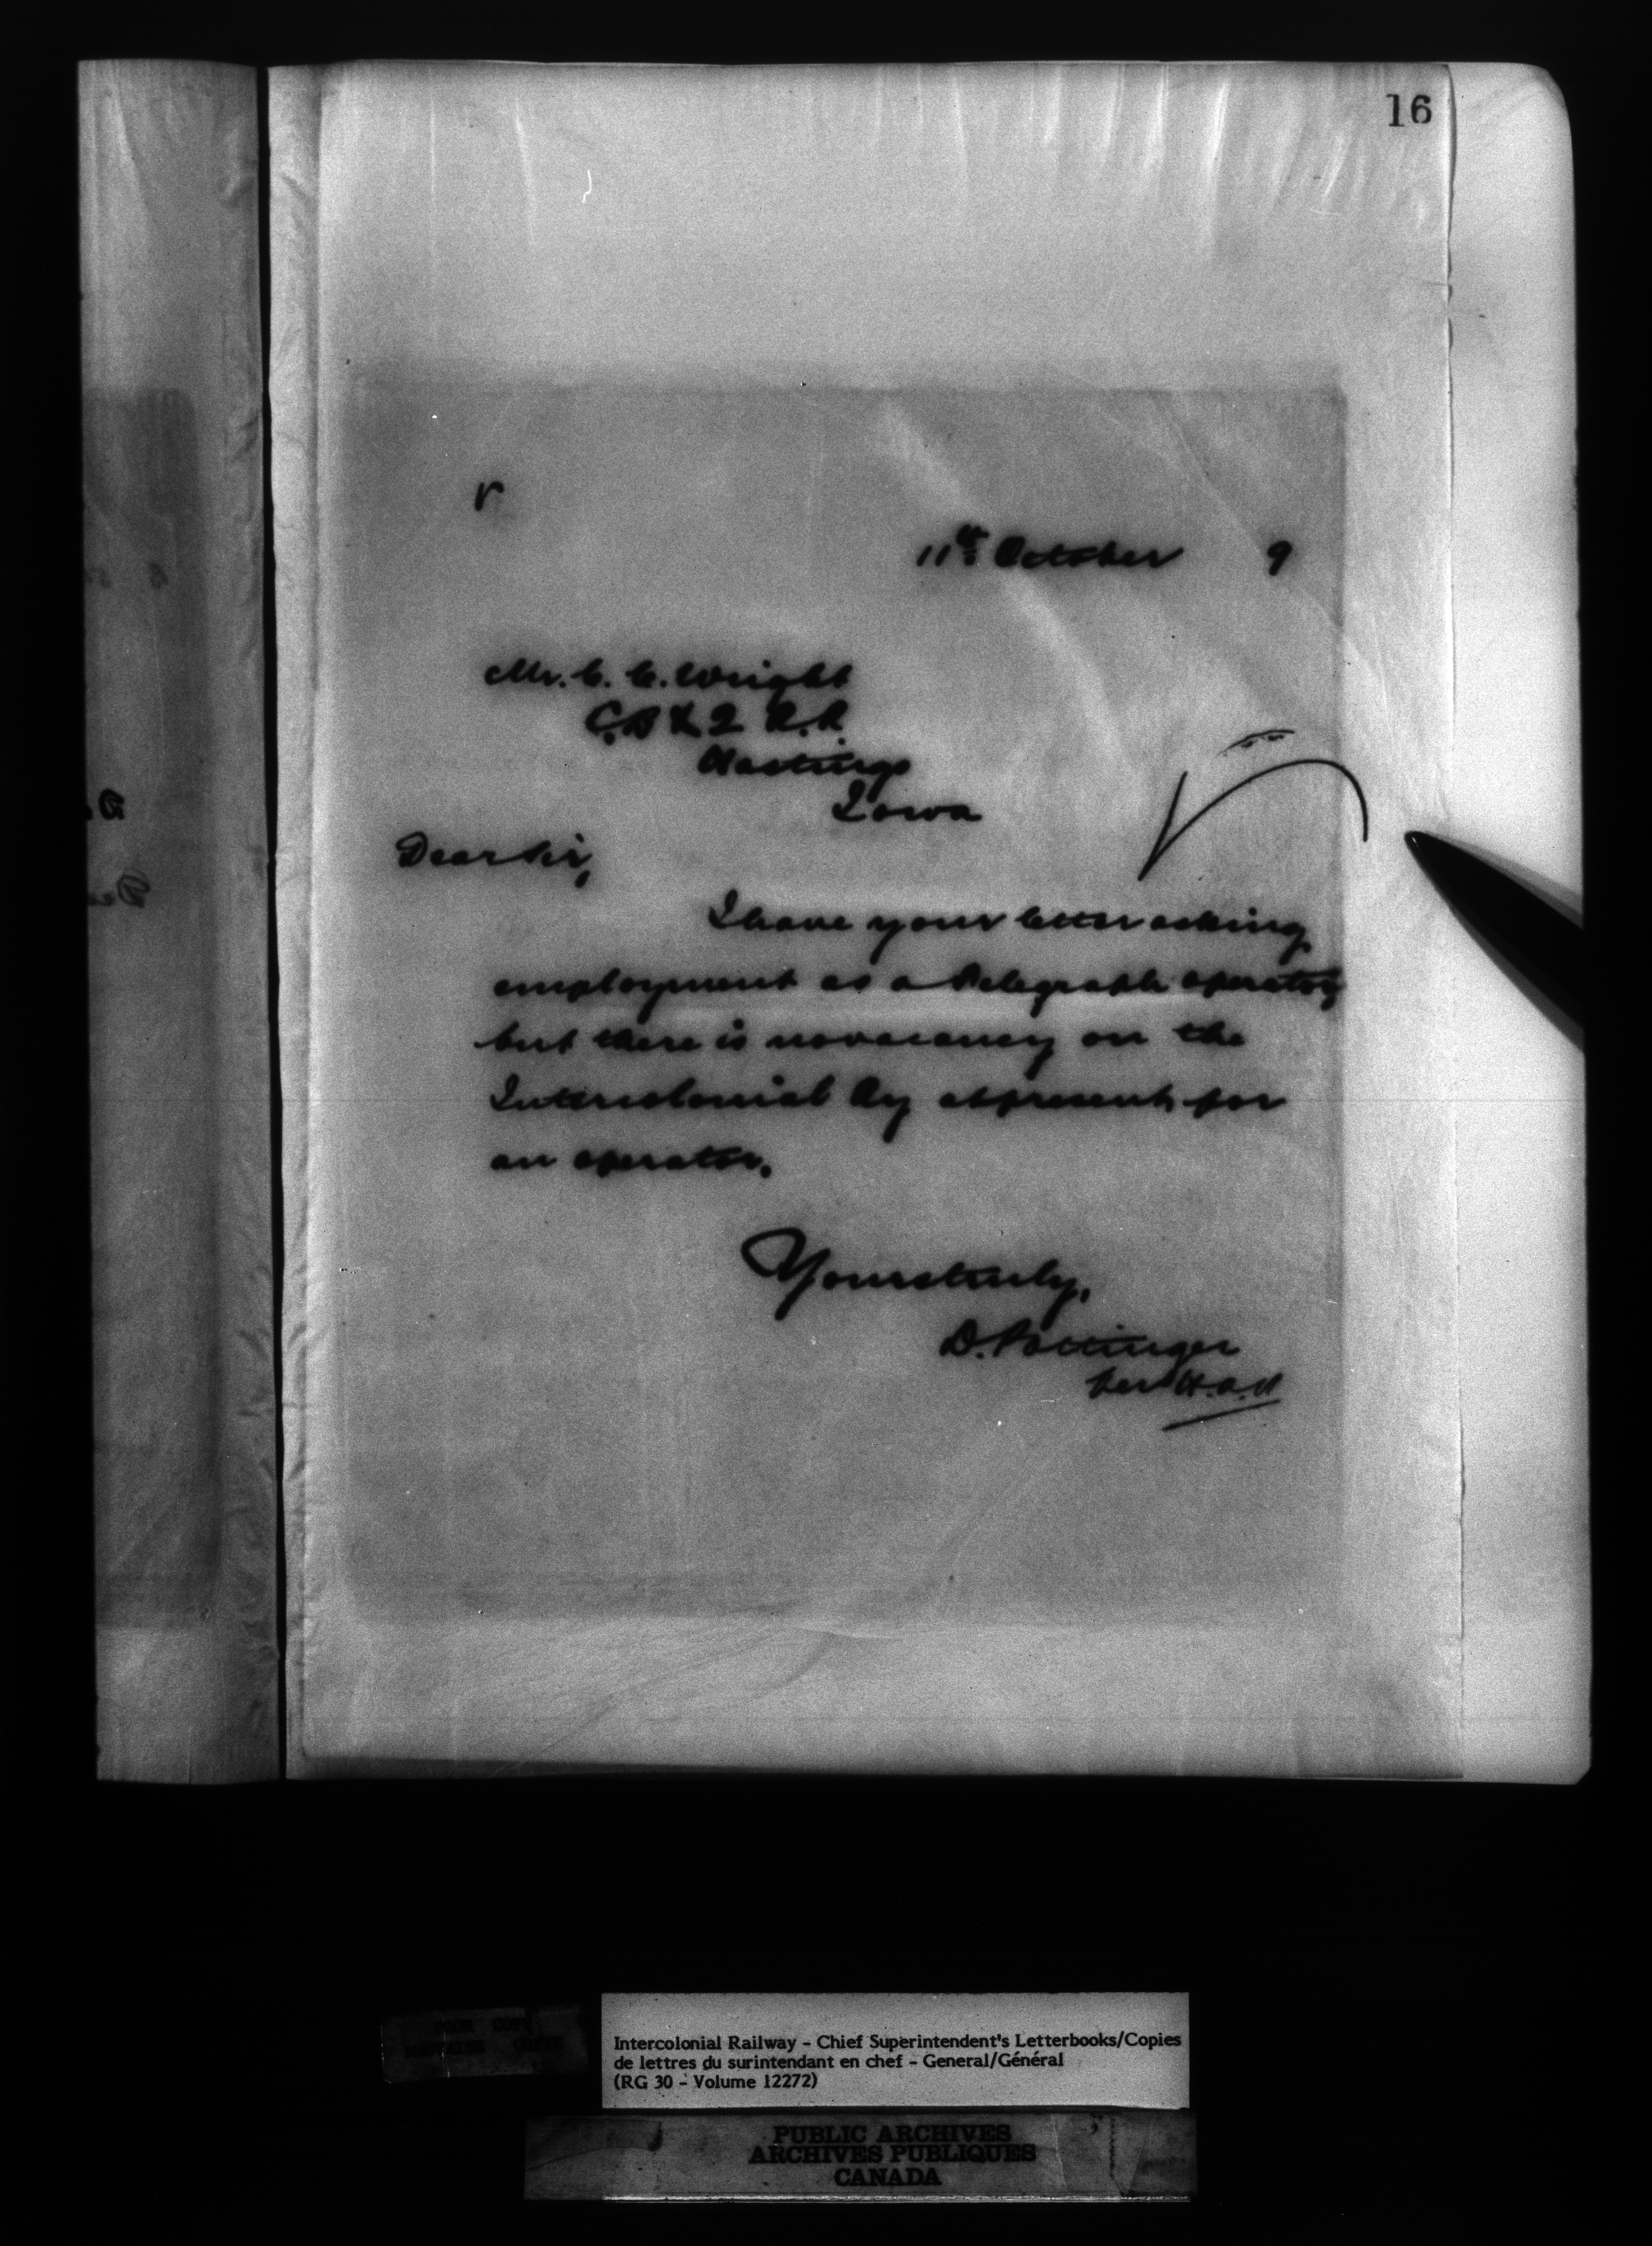 16
r
11th October 9
Mr. C. C. Wright
C. B & Q R.R.
Hastings
Iowa
Dear Sir,
I have your letter asking
employment as a telegraph operator
but there is no vacancy on the
Intercolonial Ry at present for
an operator.
Yours truly,
D. Pottinger
per
POOR COPY
Intercolonial Railway - Chief Superintendent's Letterbooks/Copies
de lettres du surintendant en chef - General/Général
(RG 30 - Volume 12272)
PUBLIC ARCHIVES
ARCHIVES PUBLIQUES
CANADA